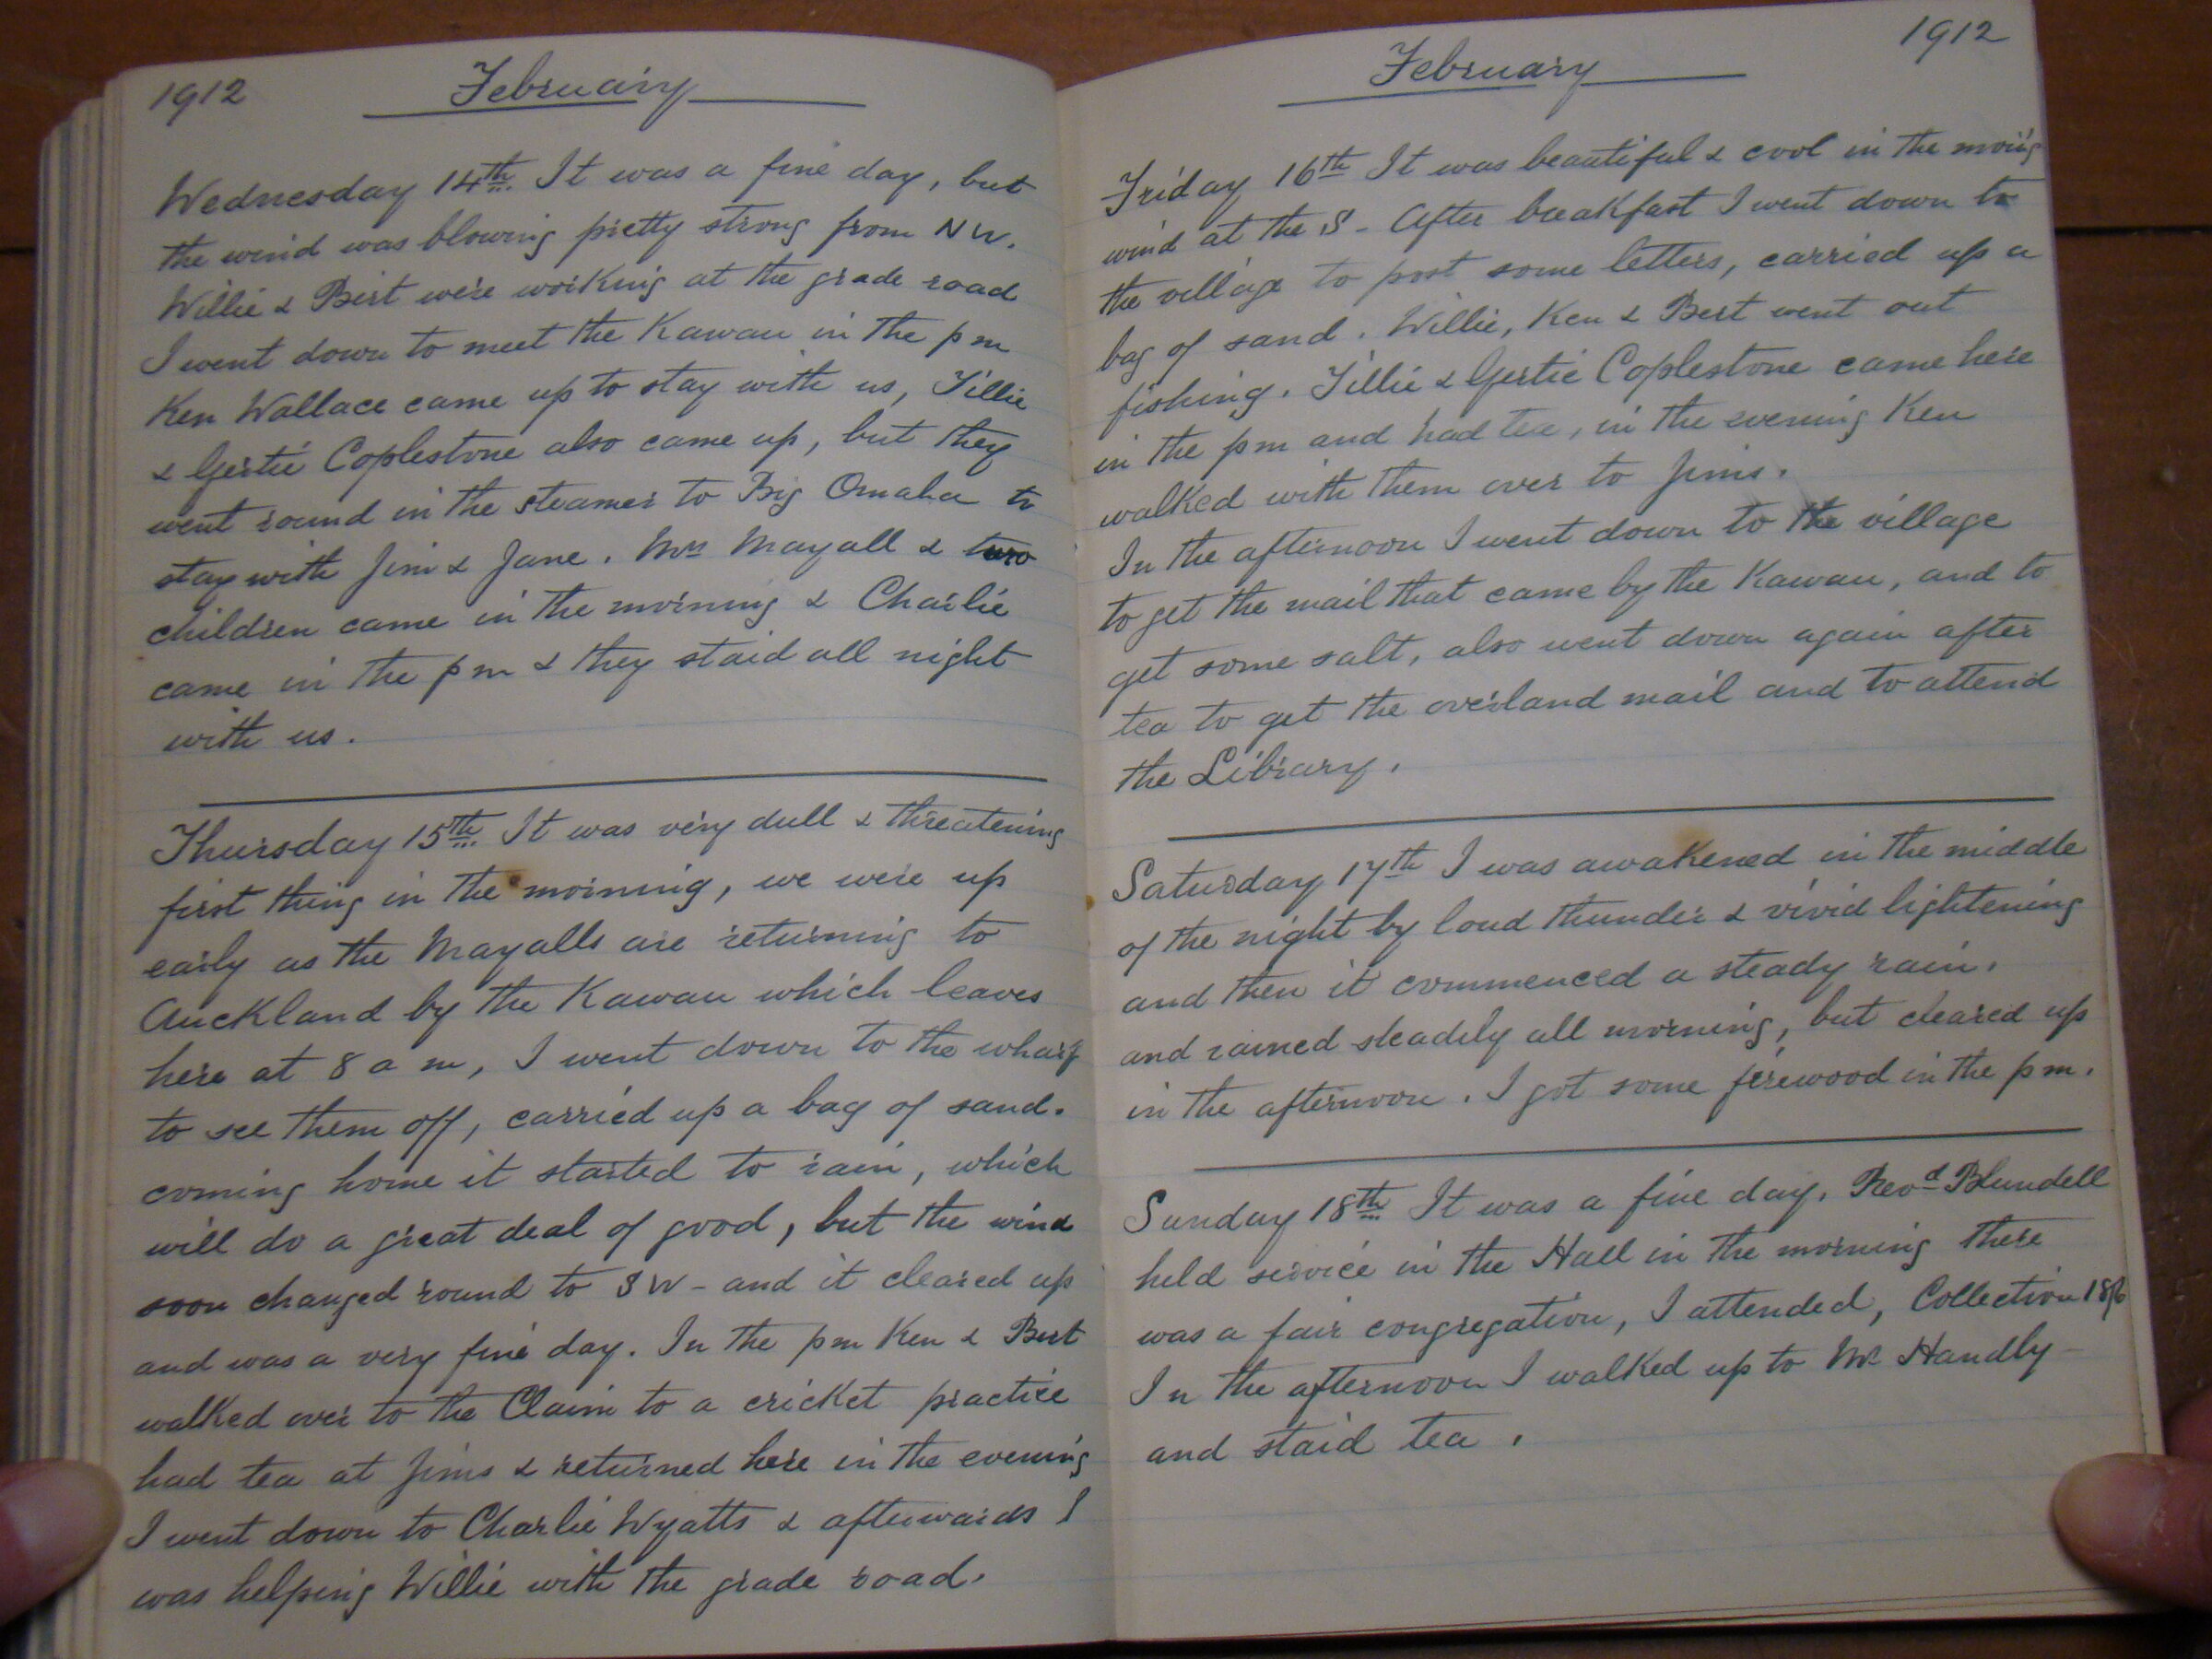 1912
February
Wednesday 14th. It was a fine day, but
the wind was blowing pretty strong from NW.
Willie & Bert were working at the grade road
I went down to meet the Kawau in the pm
Ken Wallace came up to stay with us, Tillie
& Gertie Coplestone also came up, but they
went round in the steamer to Big Omaha to
stay with Jim & Jane. Mrs Mayall & two
children came in the morning & Charlie
came in the pm & they staid all night
with us.
Thursday 15th. It was very dull & threatening
first thing in the morning, we were up
early as the Mayalls are returning to
Auckland by the Kawau which leaves
here at 8 a m, I went down to the wharf
to see them off, carried up a bag of sand.
coming home it started to rain, which
will do a great deal of good, but the wind
soon changed round to SW - and it cleared up
and was a very fine day. In the pm Ken & Bert
walked over to the Claim to a cricket practice
had tea at Jims & returned here in the evening
I went down to Charlie Wyatts & afterwards I
was helping Willie with the grade road.
1912
February
Friday 16th It was beautiful & cool in the morning
wind at the S - After breakfast I went down to
the village to post some letters, carried up a
bag of sand. Willie, Ken & Bert went out
fishing. Tillie & Gertie Coplestone came here
in the pm and had tea, in the evening Ken
walked with them over to Jims.
In the afternoon I went down to the village
to get the mail that came by the Kawau, and to
get some salt, also went down again after
tea to get the overland mail and to attend
the Library.
Saturday 17th I was awakened in the middle
of the night by loud thunder & vivid lightening
and then it commenced a steady rain.
and rained steadily all morning, but cleared up
in the afternoon. I got some firewood in the pm.
Sunday 18th It was a fine day. Revd Blundell
held service in the Hall in the morning there
was a fair congregation, I attended, Collection 18/6
In the afternoon I walked up to Mr Handly -
and staid tea.